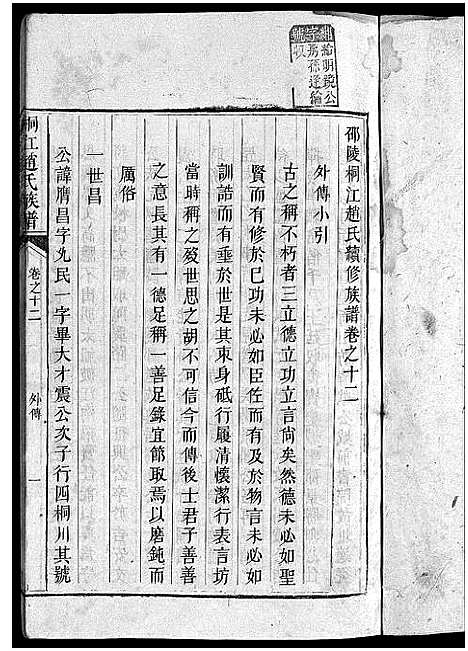 邵陵桐江趙氏續修族譜卷之十二
外傳小引
古之稱不朽者三立德立功立言尚矣然德未必如聖
賢而有修於已功未必如臣佐而有及於物言未必如
訓誥而有垂於世是其束身砥行履清懷潔行表言坊
當時稱之歿世思之胡不可信今而傳後士君子善善
之意長其有一德足稱一善足錄宜節取焉以磨鈍而
厲俗
一世昌
公諱膺昌字允民一字畢大才震公次子行四桐川其號
桐江趙氏族譜
卷之十二
外傳
一
字號
明鏡公
房孫逢
收